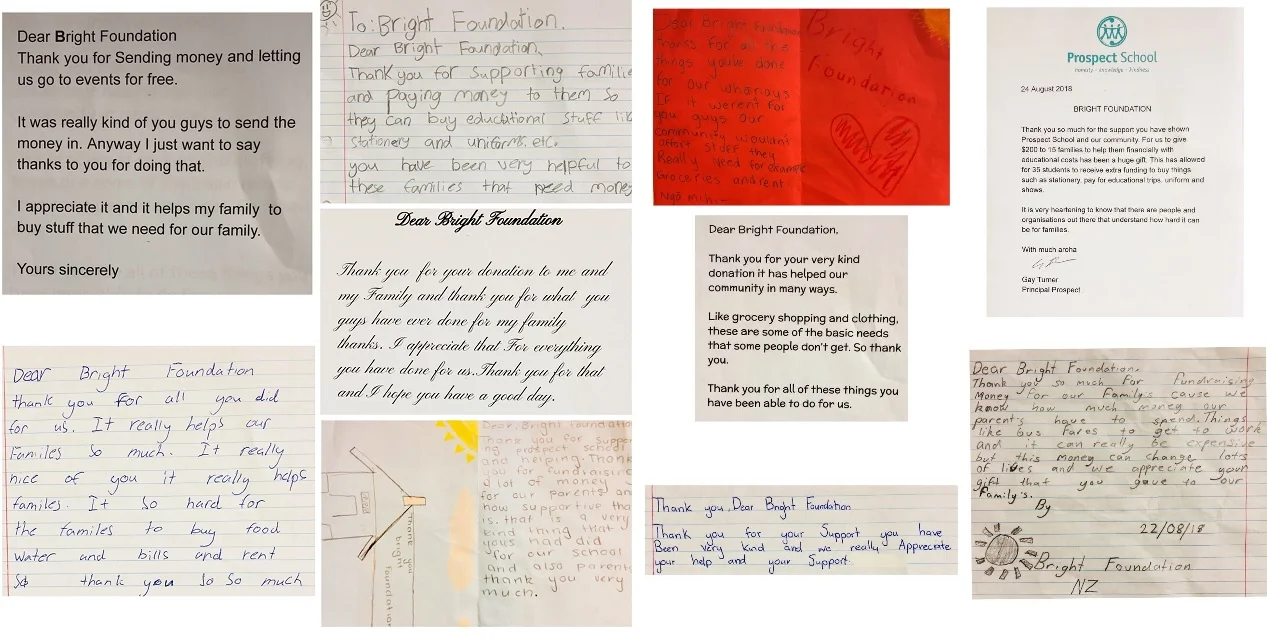 Dear Bright Foundation
Thank you for Sending money and letting
us go to events for free.
It was really kind of you guys to send the
money in. Anyway I just want to say
thanks to you for doing that.
I appreciate it and it helps my family to
buy stuff that we need for our family.
Yours sincerely
Dear Bright Foundation
thank you for all you did
for us. It really helps our
Familes so much. It really
nice of you it really helps
familes. It so hard for
the familes to buy food
water and bills and rent
so thank you so so much
To: Bright Foundation.
Dear Bright Foundation,
Thank you for supporting familie
and paying money to them so
they can buy educational stuff lik
stationery and uniforms. etc.
you have been very helpful to
these families that need money
Dear Bright Foundation
Thank you for your donation to me and
my Family and thank you for what you
guys have ever done for my family
thanks. I appreciate that For everything
you have done for us.Thank you for that
and I hope you have a good day.
Thank you
bright
foundation
Dear. Bright foundatio
Thank you for suppor
ing prospect school
and helping. Thank
you for fundraising
a lot of money
for our parents an
how supportive tha
is. that is a very
kind thing that
yous had did
for our school
and also parent
thank you very
much.
Dear Bright foundation
thanks for all the
things you've done
for our whanau
If it werent for
you guys our
community wouldn't
afford stuff they
Really need for example
Groceries and rent
Ngā mihi
Bright
Foundation
Dear Bright Foundation,
Thank you for your very kind
donation it has helped our
community in many ways.
Like grocery shopping and clothing,
these are some of the basic needs
that some people don't get. So thank
you.
Thank you for all of these things you
have been able to do for us.
Thank you, Dear Bright Foundation
Thank you for your Support you have
Been very kind and we really Appreciate
your help and your Support.
Prospect School
honesty - knowledge - kindness
24 August 2018
BRIGHT FOUNDATION
Thank you so much for the support you have shown
Prospect School and our community. For us to give
$200 to 15 families to help them financially with
educational costs has been a huge gift. This has allowed
for 35 students to receive extra funding to buy things
such as stationery, pay for educational trips, uniform and
shows.
It is very heartening to know that there are people and
organisations out there that understand how hard it can
be for families.
With much aroha
Gay Turner
Principal Prospect
Dear Bright Foundation,
Thank you so much for fundraising
Money for our Family's cause we
know how much money our
parent's have to spend. Things
like bus fares to get to work
and it can really be expensive
but this money can change lot's
of lives and we appreciate your
gift that you gave to our
Family's.
By
22/08/18
Bright Foundation
NZ